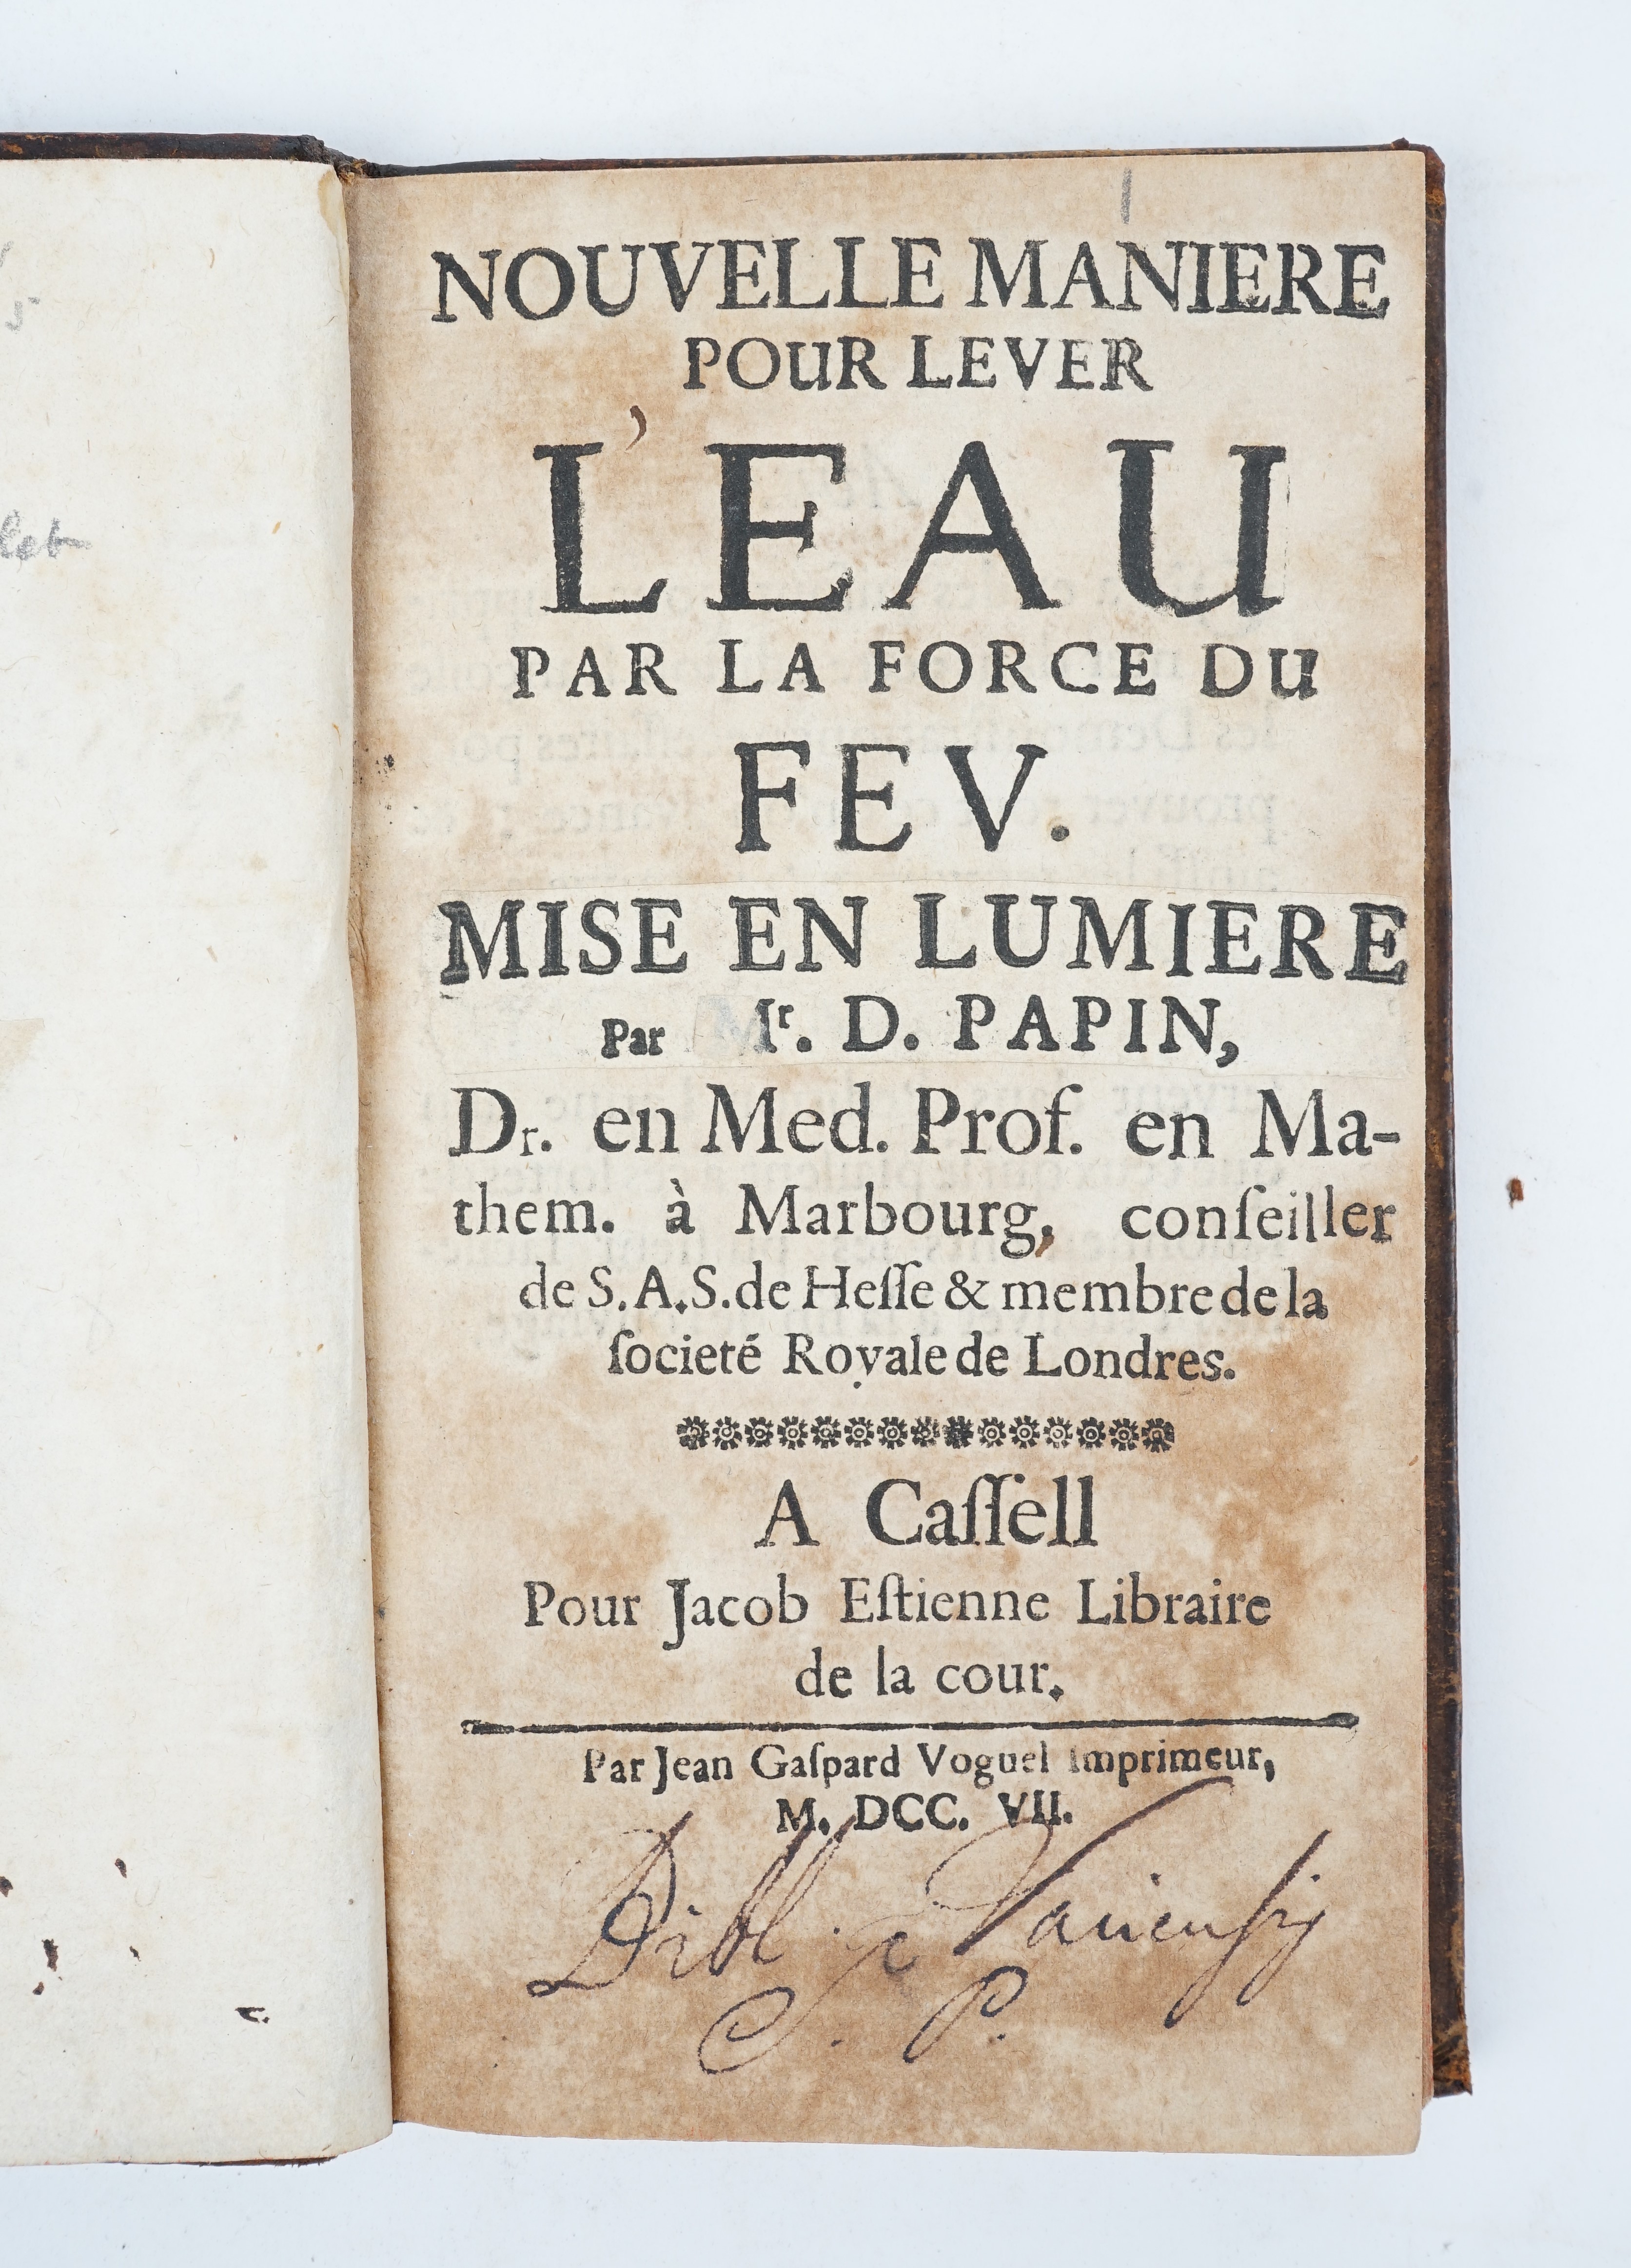 NOUVELLE MANIERE
POUR LEVER
L'EAU
PAR LA FORCE DU
FEV.
MISE EN LUMIERE
Par Mr. D. PAPIN,
Dr. en Med. Prof. en Ma-
them. à Marbourg, conſeiller
de S.A.S. de Heſſe & membre de la
ſocieté Royale de Londres.
A Caſſell
Pour Jacob Eſtienne Libraire
de la cour.
Par Jean Gaſpard Voguel Imprimeur,
M. DCC. VII.
Bibl.
C. P.